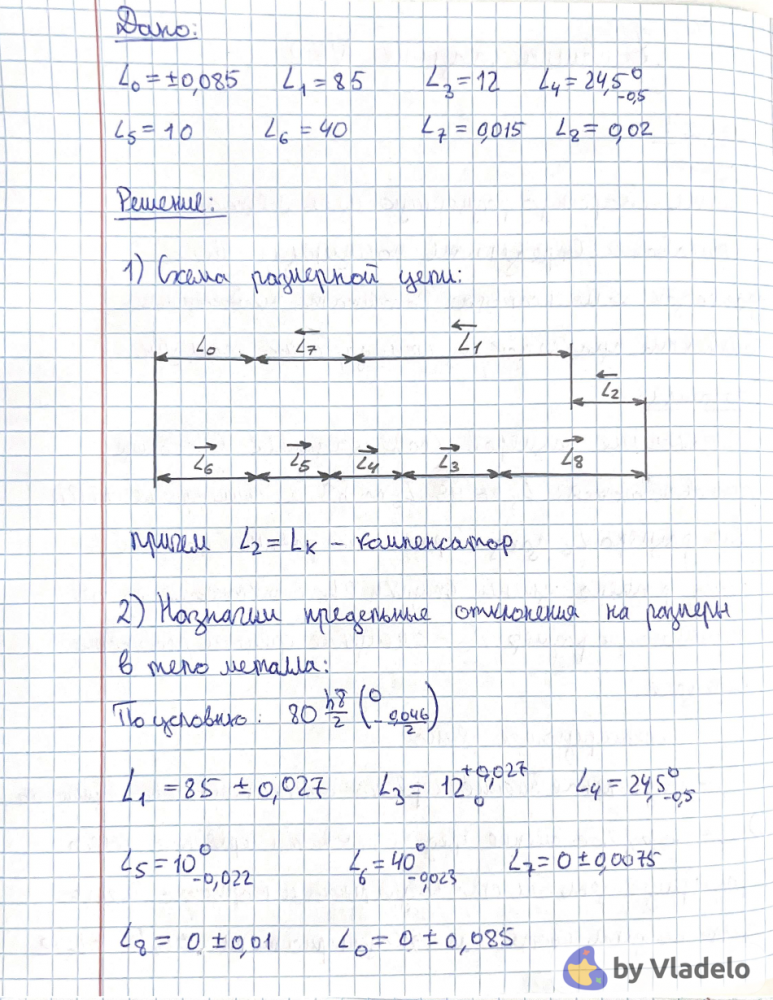 Дано:
L₀ = ±0,085 L₁ = 85 L₃ = 12 L₄ = 24,5⁰₋₀,₅
L₅ = 10 L₆ = 40 L₇ = 0,015 L₈ = 0,02
Решение:
1) Схема размерной цепи:
L₀ ←L₇ ←L₁
←L₂
→L₆ →L₅ →L₄ →L₃ →L₈
причем L₂ = Lк – компенсатор
2) Назначим предельные отклонения на размеры
в тело металла:
По условию: 80 h8/2 (0 -0,046/2)
L₁ = 85 ± 0,027 L₃ = 12 +0,027 0 L₄ = 24,5 0 -0,5
L₅ = 10 0 -0,022 L₆ = 40 0 -0,023 L₇ = 0 ± 0,0075
L₈ = 0 ± 0,01 L₀ = 0 ± 0,085
by Vladelo